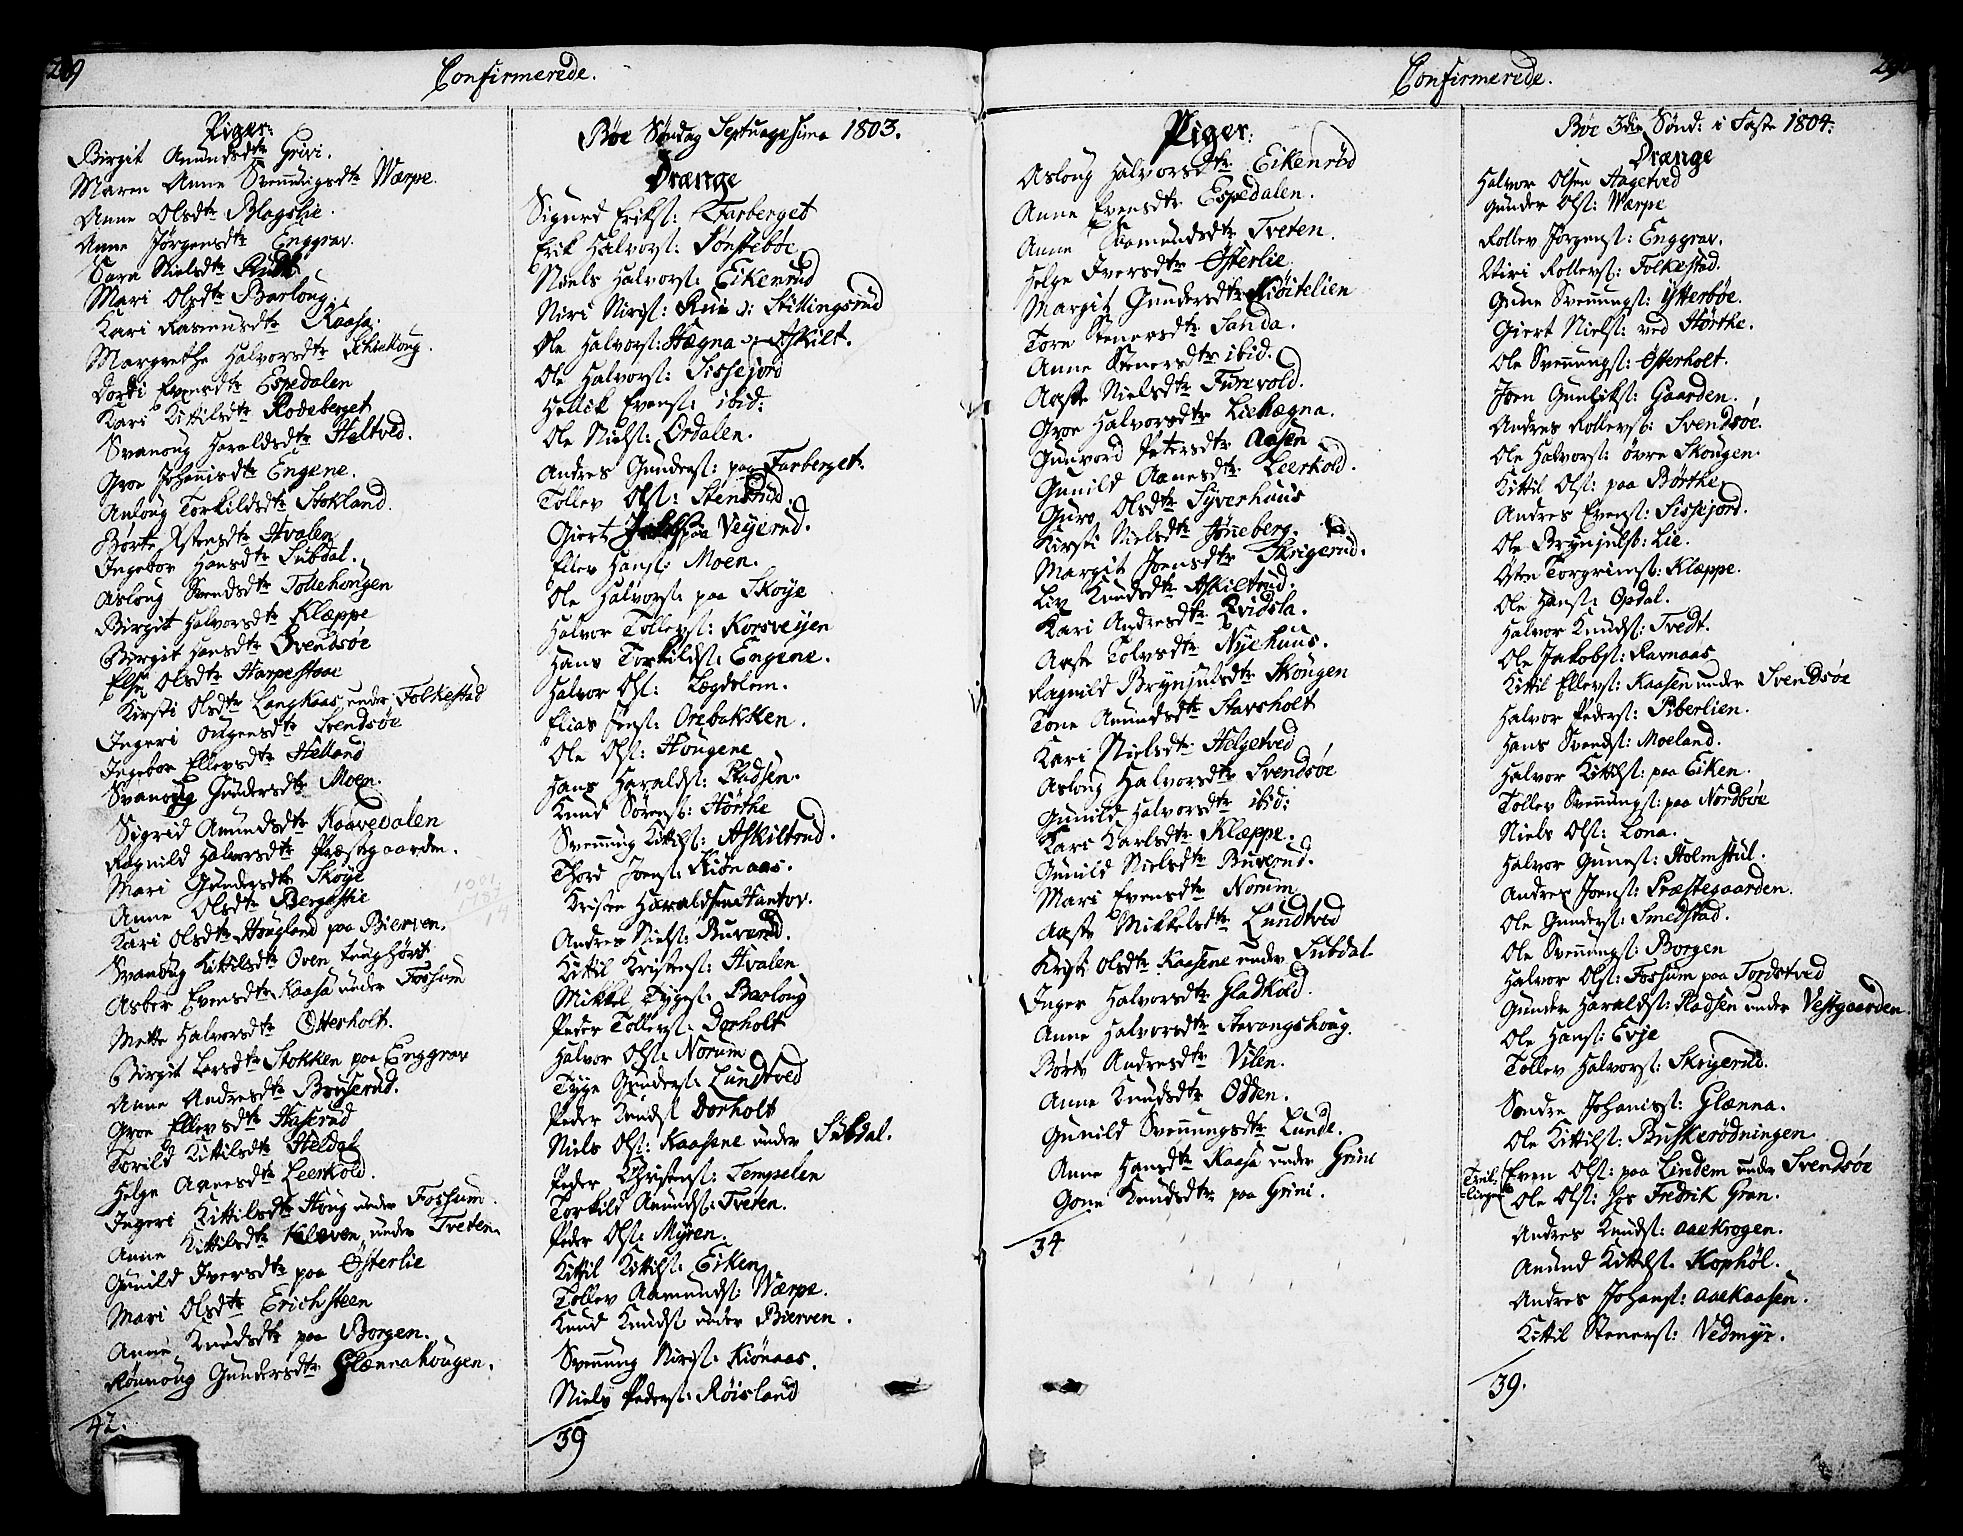 Confirmerede.
Piger:
Birgit Amundsdtr Grivi.
Maren Anne Svennungsdtr Wærpe.
Anne Olsdtr Blagslie.
Anne Jørgensdtr Enggrav.
Sara Nielsdtr
Mari Olsdtr Barloug
Kari Rasmusdtr Kaasa.
Margrethe Halvorsdtr
Dorti Evensdtr Espedalen
Kari Kittilsdtr Rodeberget
Svanoug Haraldsdtr Haltved.
Groe Johannisdtr Engene.
Anloug Torkildsdtr Stokland.
Børte Østensdtr Hvalen
Ingebor Hansdtr Sübdal.
Asloug Svendsdtr Tollehougen
Birgit Halvorsdtr Klæppe
Birgit Hansdtr Svendsøe
Else Olsdtr Harpestaae
Kirsti Olsdtr Langkaas under Folkestad
Ingeri Ougensdtr Svendsøe
Ingebor Ellevsdtr Helland
Svanoug Gundersdtr Moen.
Sigrid Amundsdtr Kaavedalen
Ragnild Halvorsdtr Præstgaarden.
Mari Gundersdtr Skoye
Anne Olsdtr Bergestie
Kari Olsdtr Hougland paa Bierven.
Svanoug Kittilsdtr Oven
Asber Evensdtr Kaasa under Fossum
Mette Halvorsdtr Otterholt.
Birgit Larsdtr Stokken paa Enggrav
Anne Andresdtr Bruserud.
Groe Ellevsdtr Haserud
Torild Kittilsdtr Heldal
Helge Aanesdtr Leerkold.
Ingeri Kittilsdtr Houg under Fossum.
Anne Kittilsdtr Kleven under Tveten.
Gunild Iversdtr paa Østerlie
Mari Olsdtr Erichsteen
Anne Knudsdtr paa Borgen.
Rønnoug Gundersdtr Glænnahougen.
42.
Bøe Søndag Septuagesima 1803.
Drænge
Sigurd Erikst: Farberget
Erik Halvorst: Tønstebøe
Niels Halvorst: Eikenrud
Niri Nirist: Rui i Stillingsrud
Ole Halvorst: Hægna Askilt.
Ole Halvorst: Sissejord
Hellik Evenst: ibid:
Ole Nielst: Ordalen.
Andres Gunderst: paa Farberget.
Tollev Olst: Stensrud.
Giert paa Veyerud.
Ellev Hanst: Moen.
Ole Halvorst: paa Skoye
Halvor Tollevst: Korsveyen
Hans Torkildst: Engene.
Halvor Olst: Lægdslem.
Elias Jenst: Orebakken.
Ole Olst: Hougene
Hans Haraldst: Pladsen.
Knud Sørenst: Hørthe
Svennung Kittilst: Askiltrud.
Thord Joenst: Kiønaas.
Kristen Haraldsen Hantov.
Andres Nielst: Buverud.
Kittil Kristenst: Hvalen
Mikkel Tygest: Barloug
Peder Tollevst: Dorholt
Halvor Olst: Norum
Tyge Gunderst: Lundtved
Peder Knudst Dorholt
Niels Olst: Kaasene under Sübdal.
Peder Christenst: Tempelen
Torkild Amundst: Tveten.
Peder Olst: Myren.
Kittil Kittilst: Eiken
Tollev Aamundst: Wærpe.
Knud Knudst under Bierven.
Svennung Nirist: Kiønaas.
Niels Pederst: Røisland
39
Confirmerede.
Piger:
Asloug Halvorsdtr Eikenrød
Anne Evensdtr Espedalen.
Anne Aamundsdtr Tveten.
Helge Iversdtr Østerlie
Margit Gundersdtr Kiøitelien
Tore Stenersdtr Sanda.
Anne Stenersdtr ibid.
Aaste Nielsdtr Furevold.
Groe Halvorsdtr Liehægna.
Gunvord Petersdtr Aasen
Gunild Aanesdtr: Leerkold.
Guro Olsdtr Syverhuus
Kirsti Nielsdtr Jøneberg.
Margit Joensdtr Skrigerud.
Liv Knudsdtr Askiltrud.
Kari Andresdtr Qvidsla.
Aaste Tolvsdtr Nyehuus.
Ragnild Brynjulsdtr Skougen
Tone Amundsdtr Stavsholt
Kari Nielsdtr Helgetved
Asloug Halvorsdtr Svendsøe
Gunild Halvorsdtr ibid:
Kari Karlsdtr Klæppe.
Gunild Nielsdtr Buverud.
Mari Evensdtr Norum
Aaste Mikkelsdtr Lundtved
Kristi Olsdtr Kaasene under Sübdal.
Inger Halvorsdtr Gladkold.
Anne Halvorsdtr Stavangshoug.
Børte Andresdtr Vilen.
Anne Knudsdtr Odden.
Gunild Svennungsdtr Lunde.
Anne Hansdtr Kaasa under Grini
Gone Knudsdtr paa Grini.
34
Confirmerede.
Bøe 3die Sønd: i Faste 1804:
Drænge
Halvor Olsen Aagetved
Gunder Olst: Wærpe
Rollev Jørgenst: Enggrav.
Niri Rollevst: Folkestad.
Gune Svennungst: Ytterbøe.
Giert Nielst: ved Hørthe.
Ole Svennungst: Østerholt.
Joen Gunlikst: Gaarden.
Andres Rollevst: Svendsøe.
Ole Halvorst: øvre Skougen.
Kittil Olst: paa Børthe
Andres Evenst: Sissejord.
Ole Brynjulst: Lie.
Østen Torgrimst: Klæppe.
Ole Hanst: Opdal.
Halvor Knudst: Tvedt.
Ole Jakobst: Ravnaas
Kittil Ellevst: Kaasen under Svendsøe
Halvor Pederst: Siberlien.
Hans Svendst: Moeland.
Halvor Kittilst: paa Eiken.
Tollev Svennungst: paa Nordbøe
Niels Olst: Lona.
Halvor Gunest: Holmstul.
Andres Joenst: Præstegaarden.
Ole Gunderst: Smedstad.
Ole Svennungst: Borgen
Halvor Olst: Fossum paa Tordstved
Gunder Haraldst: Pladsen under Vestgaarden.
Ole Hanst: Evje
Tollev Halvorst: Skrigerud.
Sondre Johanist: Glænna.
Ole Kittilst: Buskerødningen.
Tvil-
linger
Even Olst: paa Lindem under Svendsøe
Ole Olst: hos Fredrik Gran.
Andres Knudst: Aaekrogen.
Amund Kittilst: Kophøl.
Andres Johanst: Aaekaasen.
Kittil Stenerst: Vedmyr.
39.